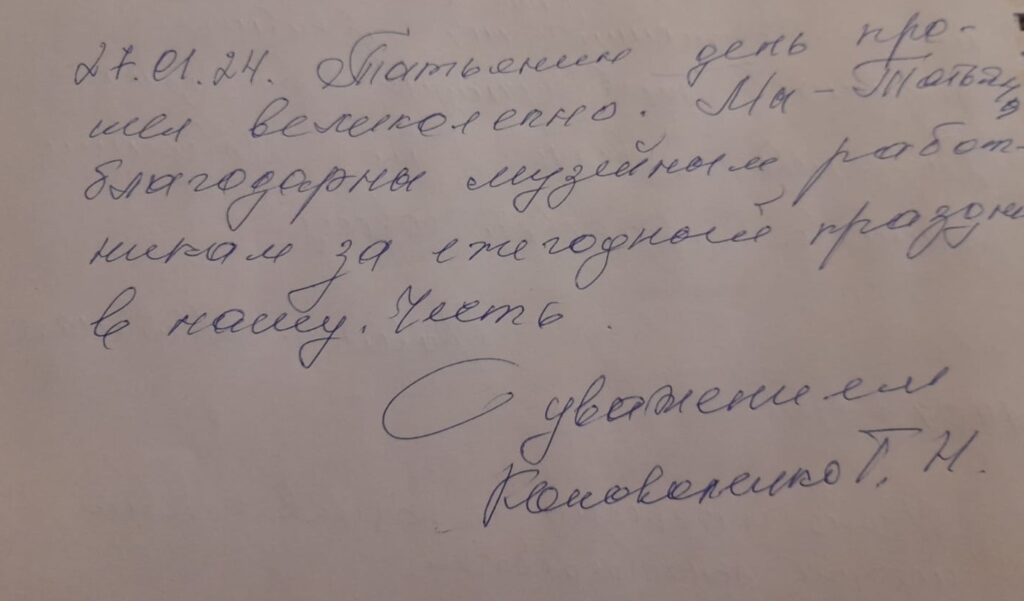 27.01.24. Татьянин день про-
шел великолепно. Мы - Татьяны
благодарны музейным работ-
никам за ежегодный праздни
в нашу. Честь.
С уважением
Т. Н.